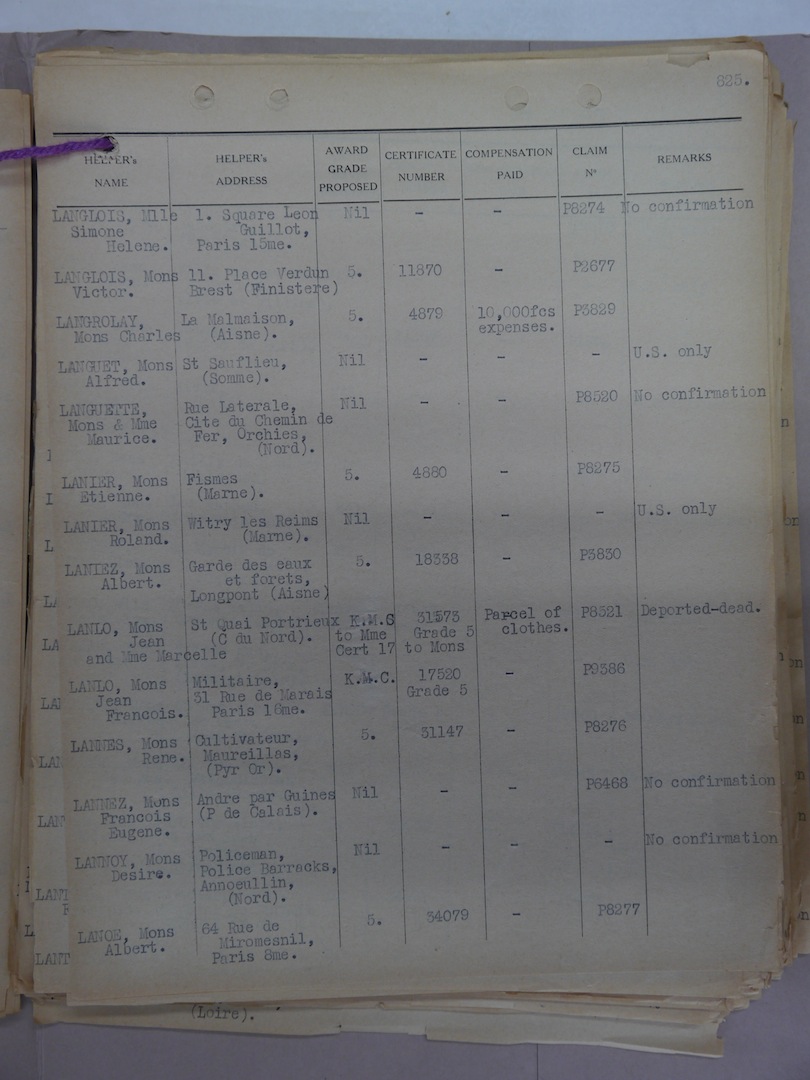 825.
HELPER's NAME HELPER's ADDRESS AWARD GRADE PROPOSED CERTIFICATE NUMBER COMPENSATION PAID CLAIM Nº REMARKS
LANGLOIS, Mlle 1. Square Leon Nil - - P8274 No confirmation
Simone Guillot,
Helene. Paris 15me.
LANGLOIS, Mons 11. Place Verdun 5. 11870 - P2677
Victor. Brest (Finistere)
LANGROLAY, La Malmaison, 5. 4879 10,000fcs P3829
Mons Charles (Aisne). expenses.
LANGUET, Mons St Sauflieu, Nil - - - U.S. only
Alfred. (Somme).
LANGUETTE, Rue Laterale, Nil - - P8520 No confirmation
Mons & Mme Cite du Chemin de
Maurice. Fer, Orchies,
(Nord).
LANIER, Mons Fismes 5. 4880 - P8275
Etienne. (Marne).
LANIER, Mons Witry les Reims Nil - - - U.S. only
Roland. (Marne).
LANIEZ, Mons Garde des eaux 5. 18338 - P3830
Albert. et forets,
Longpont (Aisne)
LANLO, Mons St Quai Portrieux K.M.C 31573 Parcel of P8521 Deported-dead.
Jean (C du Nord). to Mme Grade 5 clothes.
and Mme Marcelle Cert 17 to Mons
LANLO, Mons Militaire, K.M.C. 17520 - P9386
Jean 31 Rue de Marais Grade 5
Francois. Paris 18me.
LANNES, Mons Cultivateur, 5. 31147 - P8276
Rene. Maureillas,
(Pyr Or).
LANNEZ, Mons Andre par Guines Nil - - P6468 No confirmation
Francois (P de Calais).
Eugene.
LANNOY, Mons Policeman, Nil - - - No confirmation
Desire. Police Barracks,
Annoeullin,
(Nord).
LANOE, Mons 64 Rue de 5. 34079 - P8277
Albert. Miromesnil,
Paris 8me.
(Loire).